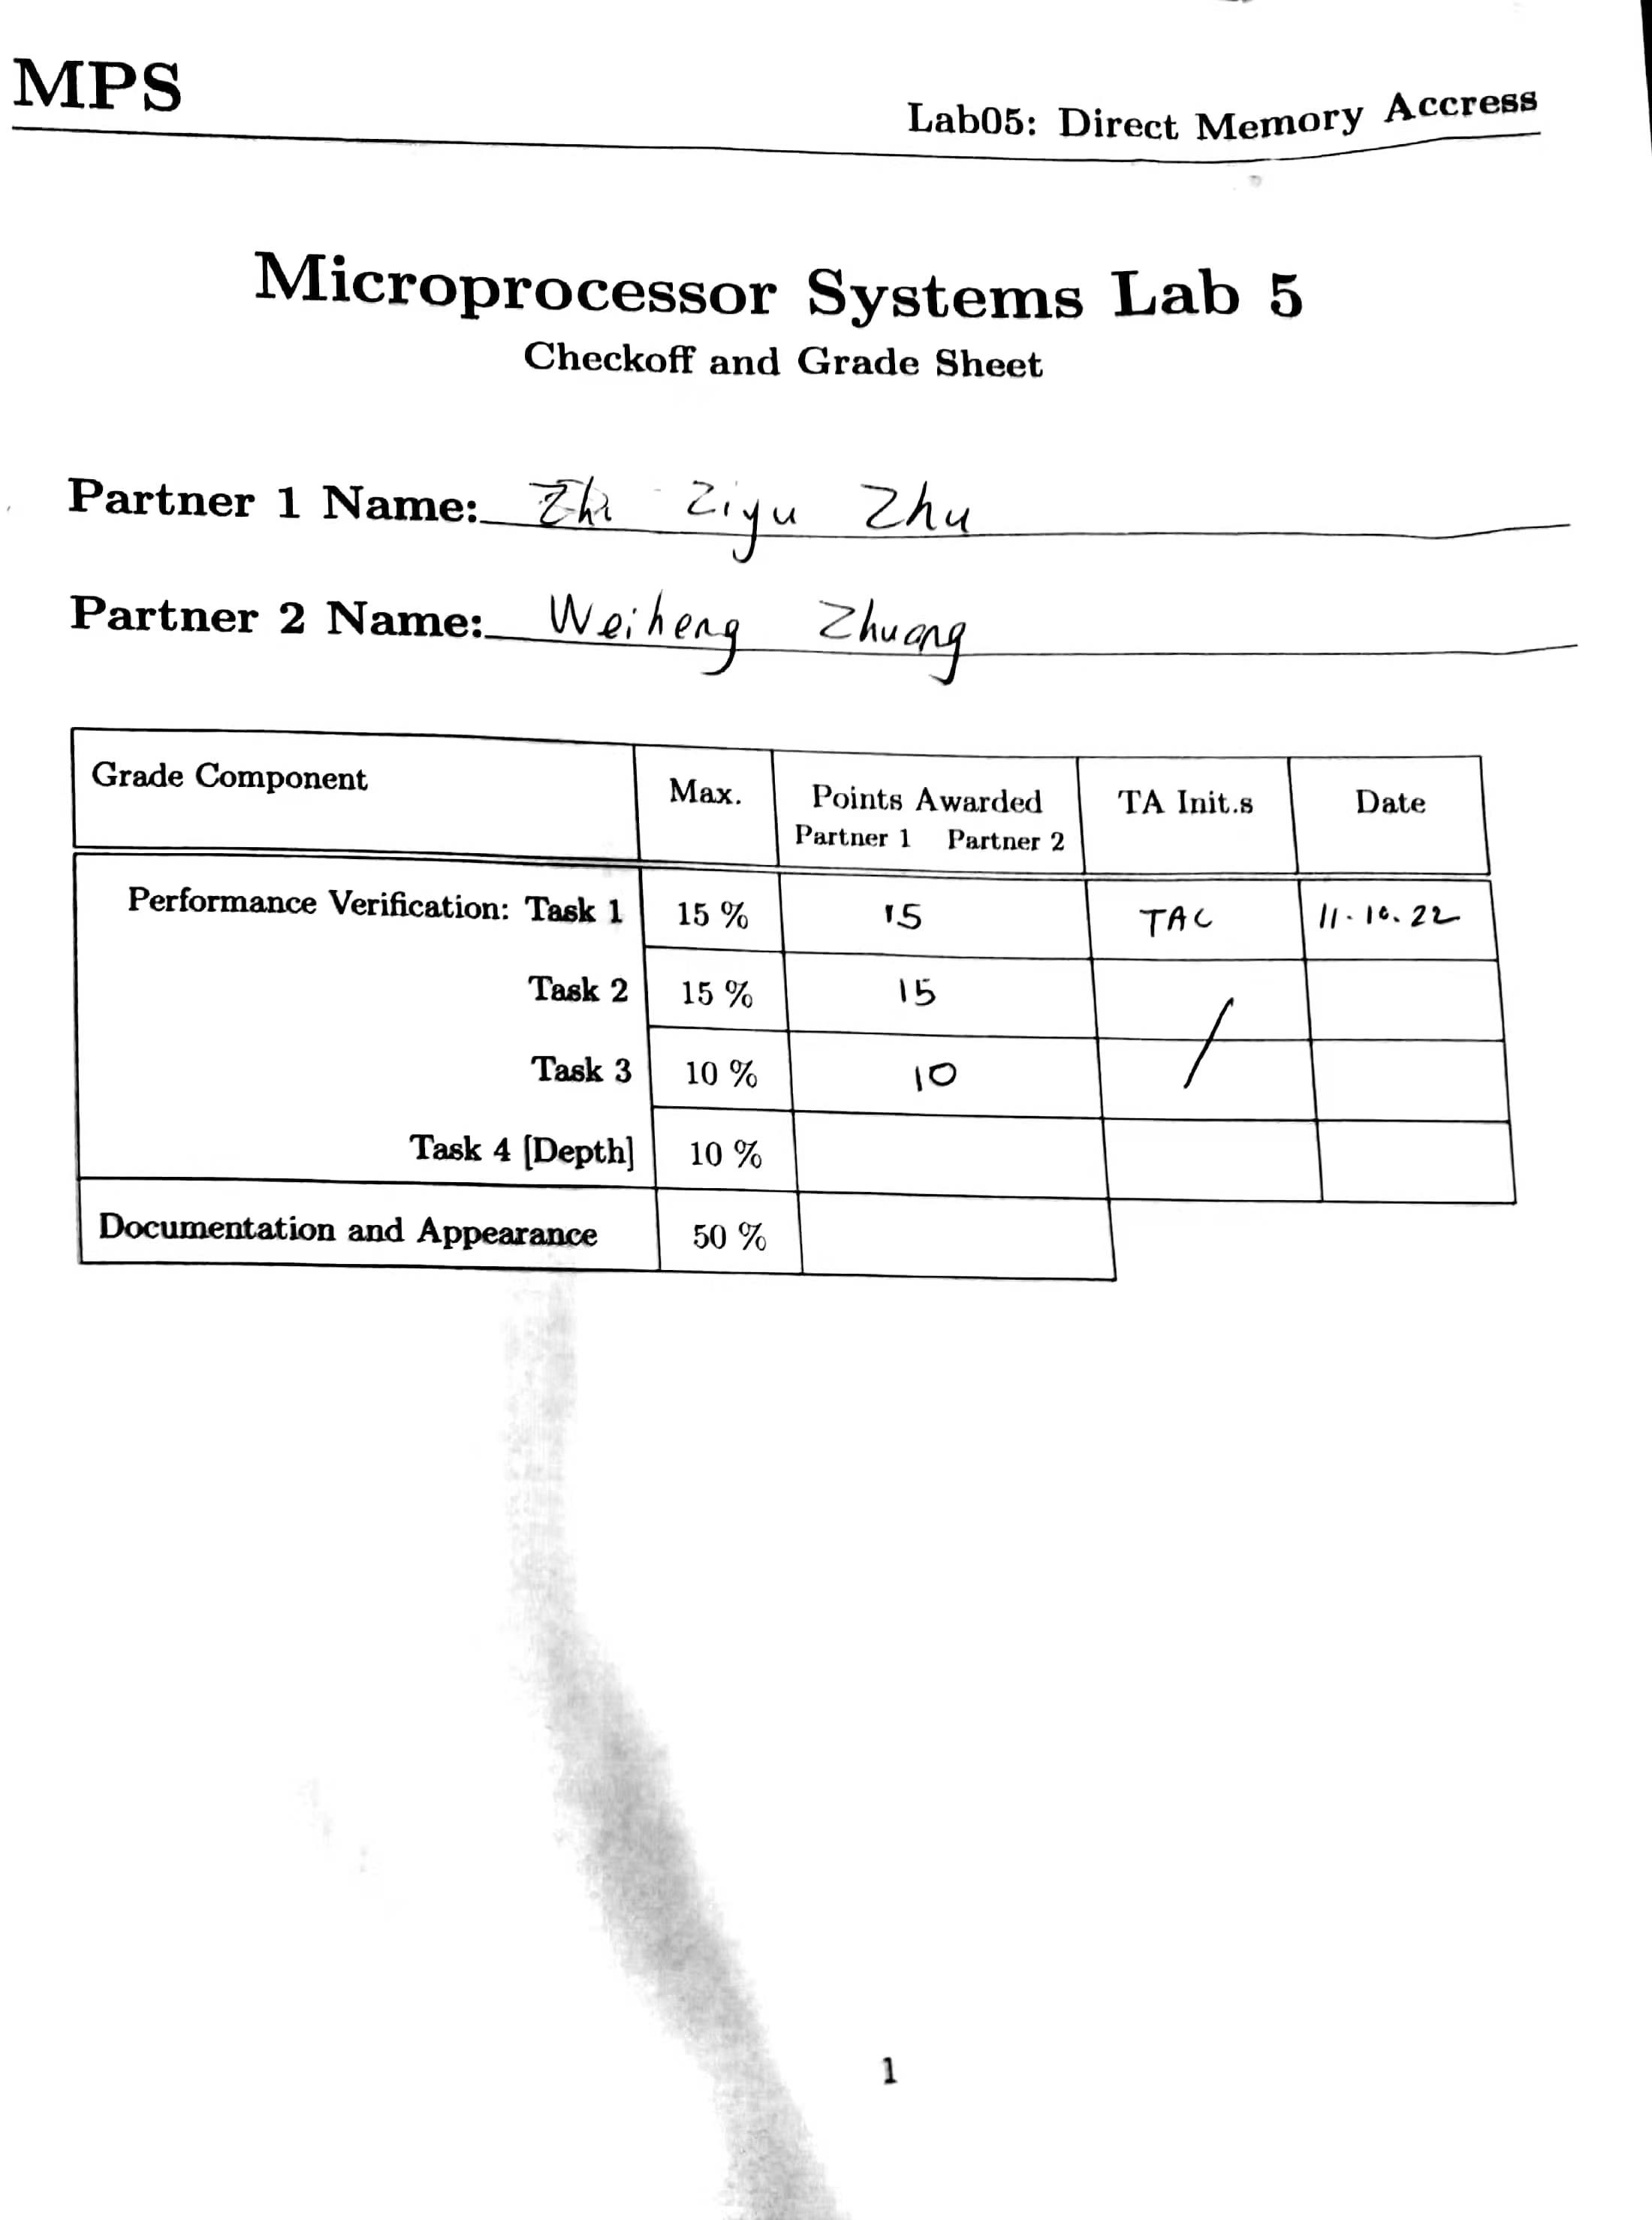 MPS
Lab05: Direct Memory Accress
Microprocessor Systems Lab 5
Checkoff and Grade Sheet
Partner 1 Name: Ziyu Zhu
Partner 2 Name: Weiheng Zhuang
Grade Component Max. Points Awarded TA Init.s Date
Partner 1 Partner 2
Performance Verification: Task 1 15 % 15 TAC 11.10.22
Task 2 15 % 15
Task 3 10 % 10
Task 4 [Depth] 10 %
Documentation and Appearance 50 %
1